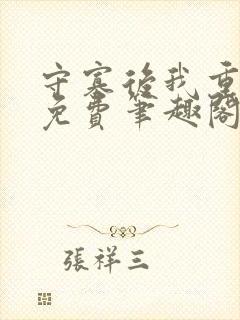 守寡後我重
免費筆趣閣
張祥三